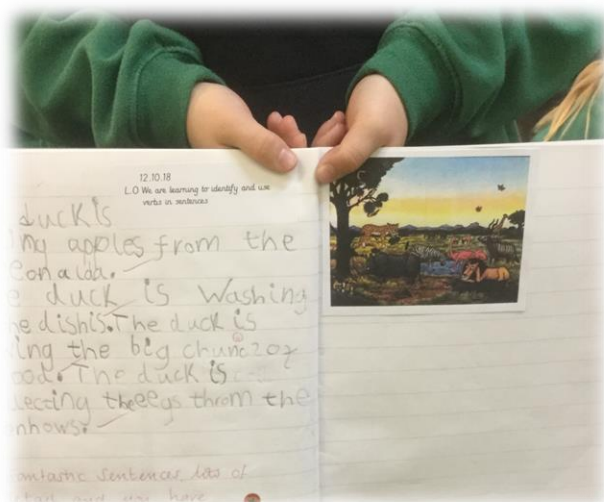 12.10.18
L.O We are learning to identify and use
verbs in sentences
duck is
ng apples from the
duck is Washing
he dishis. The duck is
ing the big chunc of
ood. The duck is
lecting the eegs throm the
nhows.
antastic sentences, lots of
and you have